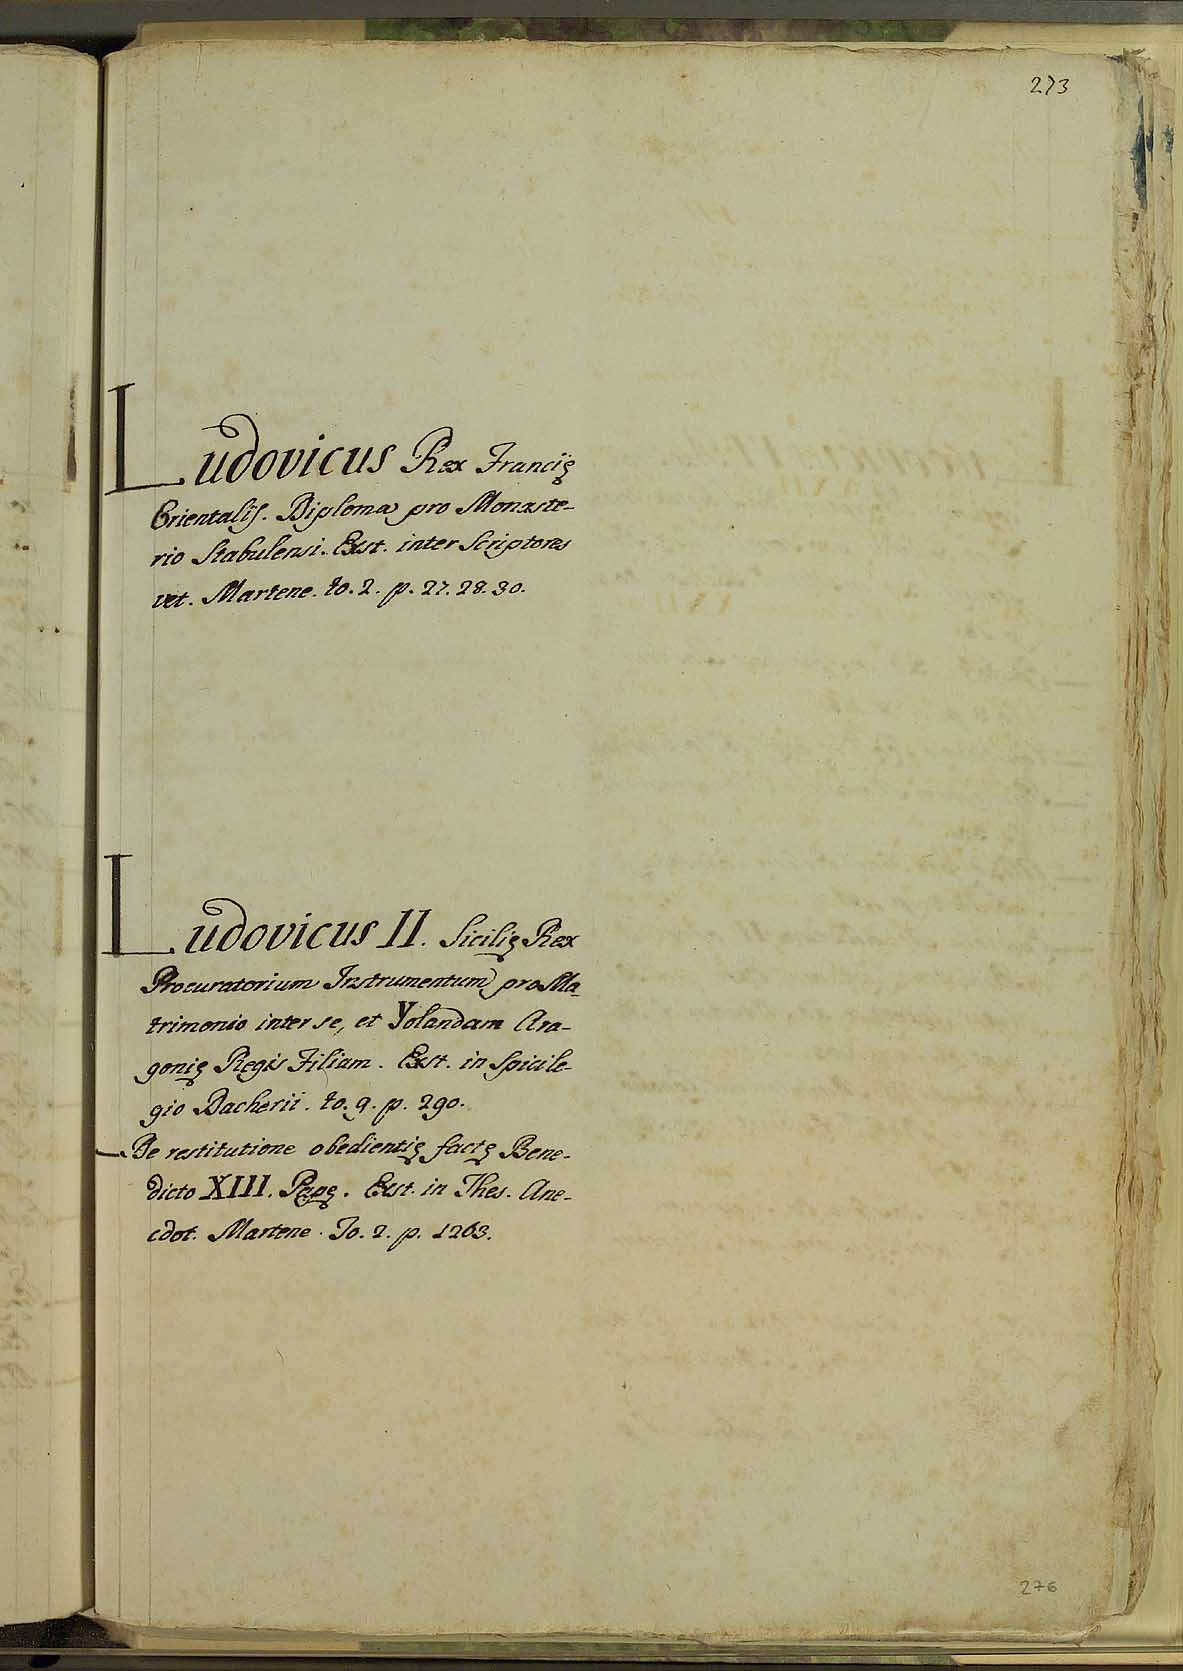 273
Ludovicus Rex Francię
Orientalis. Diploma pro Monaste-
rio Stabulensi. Exst. inter Scriptores
vet. Martene. to. 2. p. 27. 28. 30.
Ludovicus II. Sicilię Rex
Procuratorium Instrumentum pro Ma-
trimonio inter se, et Yolandam Ara-
gonię Regis Filiam. Exst. in Spicile-
gio Dacherii. to. 9. p. 290.
— De restitutione obedientię factę Bene-
dicto XIII. Papę. Exst. in Thes. Ane-
cdot. Martene. To. 2. p. 1263.
276